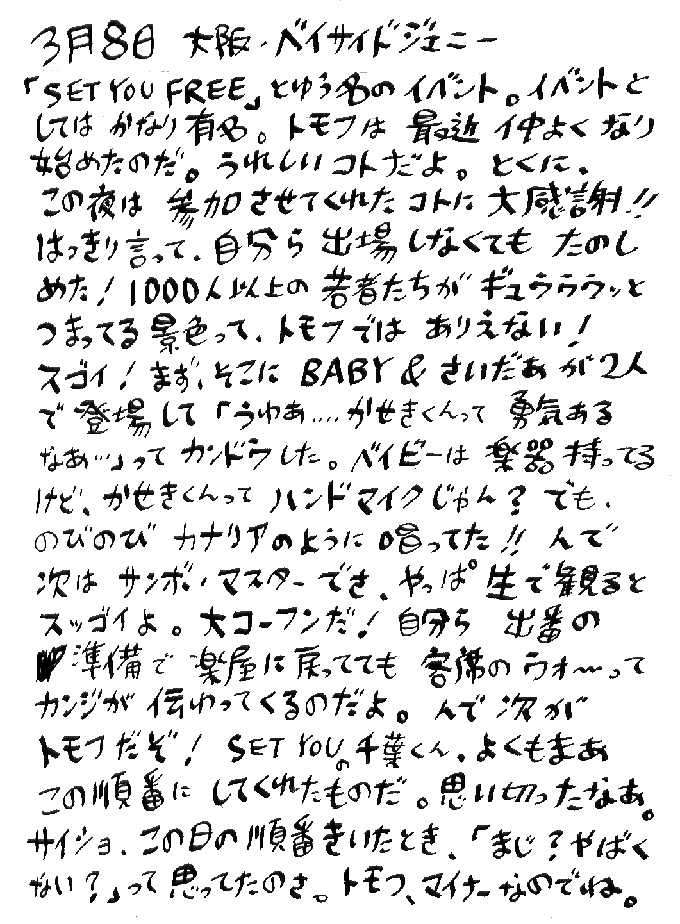 3月8日 大阪・ベイサイドジェニー
「SET YOU FREE」とゆう名のイベント。イベントと
してはかなり有名。トモフは最近仲よくなり
始めたのだ。うれしいコトだよ。とくに、
この夜は参加させてくれたコトに大感謝!!
はっきり言って、自分ら出場しなくてもたのし
めた!1000人以上の若者たちがギュウウウッと
つまってる景色って、トモフではありえない!
スゴイ!まず、そこにBABY&さいだぁが2人
で登場して「うわぁ....かせきくんって勇気ある
なぁ…」ってカンドウした。ベイビーは楽器持ってる
けど、かせきくんってハンドマイクじゃん?でも、
のびのびカナリアのように唱ってた!!んで
次はサンボ・マスターでさ、やっぱ生で観ると
スッゴイよ。大コーフンだ!自分ら出番の
準備で楽屋に戻ってても客席のウォ〜って
カンジが伝わってくるのだよ。んで次が
トモフだぞ!SET YOUの千葉くん、よくもまあ
この順番にしてくれたものだ。思い切ったなぁ。
サイショ、この日の順番きいたとき、「まじ?やばく
ない?」って思ってたのさ。トモフ、マイナーなのでね。